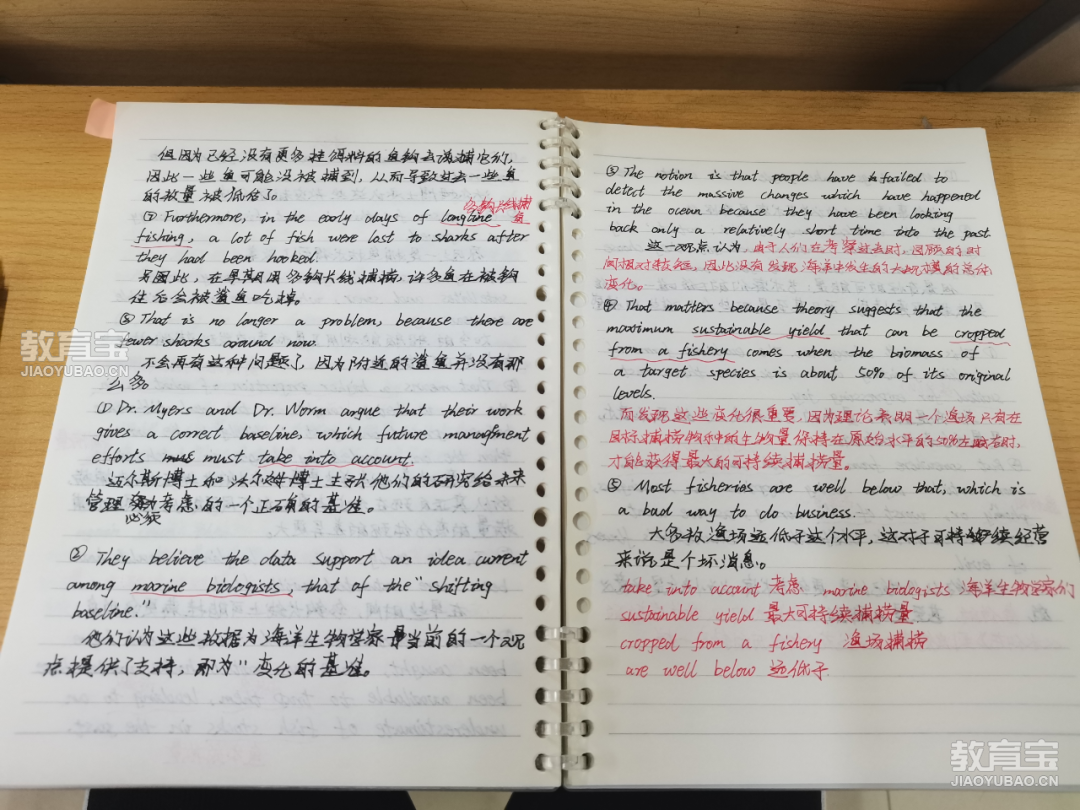 但因为已经没有更多挂饵料的鱼钩去诱捕它们,
因此一些鱼可能没被捕到,从而导致过去一些鱼
的数量被低估了。
多钩长线捕
鱼
⑦ Furthermore, in the early days of longline
fishing, a lot of fish were lost to sharks after
they had been hooked.
另因此,在早期用多钩长线捕捞,许多鱼在被钩
住后会被鲨鱼吃掉。
⑧ That is no longer a problem, because there are
fewer sharks around now.
不会再有这种问题了,因为附近的鲨鱼并没有那
么多。
① Dr. Myers and Dr. Worm argue that their work
gives a correct baseline, which future management
efforts must take into account.
迈尔斯博士和沃尔姆博士主张他们的研究给未来
管理考虑的一个正确的基准。
必须
② They believe the data support an idea current
among marine biologists, that of the "shifting
baseline."
他们认为这些数据为海洋生物学家当前的一个观
点提供了支持,即为"变化的基准。
③ The notion is that people have failed to
detect the massive changes which have happened
in the ocean because they have been looking
back only a relatively short time into the past
这一观点认为,由于人们在考察过去时,回顾的时
间相对较短,因此没有发现海洋中发生的大规模的总体
变化。
④ That matters because theory suggests that the
maximum sustainable yield that can be cropped
from a fishery comes when the biomass of
a target species is about 50% of its original
levels.
而发现这些变化很重要,因为理论表明一个渔场只有在
目标捕捞物种的生物量保持在原始水平的50%左右时,
才能获得最大的可持续捕捞量。
⑤ Most fisheries are well below that, which is
a bad way to do business.
大多数渔场远低于这个水平,这对于可持续经营
来说是个坏消息。
take into account 考虑 marine biologists 海洋生物学家们
sustainable yield 最大可持续捕捞量
cropped from a fishery 渔场捕捞
are well below 远低于
教育宝
JIAOYUBAO.CN
教育宝
JIAOYUBAO.CN